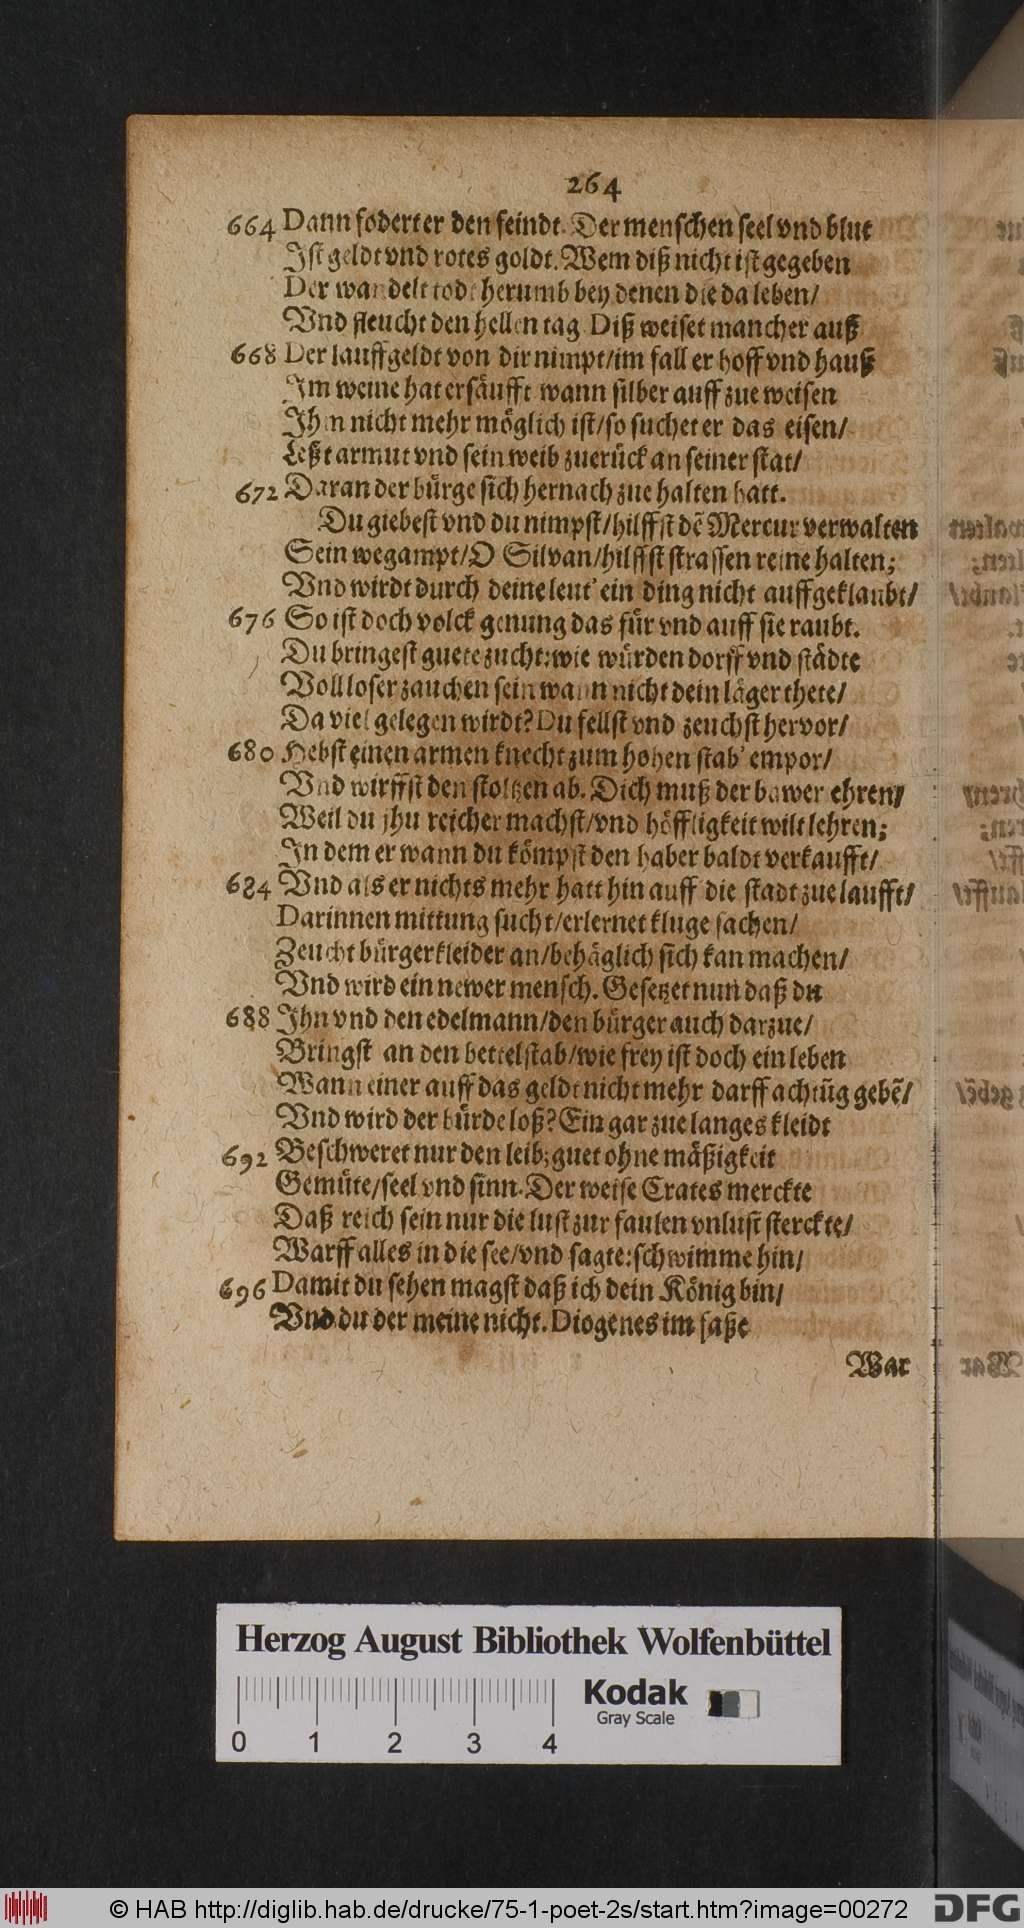 264
664 Dann foderter den feindt. Der menschen seel vnd blut
Ist geldt vnd rotes goldt. Wem diß nicht ist gegeben
Der wandelt todt herumb bey denen die da leben/
Vnd fleucht den hellen tag. Diß weiset mancher auß
668 Der lauffgeldt von dir nimpt/im fall er hoff vnd hauß
Im weine hat ersäufft wann silber auff zue weisen
Ihm nicht mehr möglich ist/so suchet er das eisen/
Leßt armut vnd sein weib zuerück an seiner stat/
672 Daran der bürge sich hernach zue halten hatt.
Du giebest vnd du nimpst/hilffst dẽ Mercur verwalten
Sein wegampt/O Silvan/hilffst strassen reine halten;
Vnd wirdt durch deine leut' ein ding nicht auffgeklaubt/
676 So ist doch volck genung das für vnd auff sie raubt.
Du bringest guete zucht: wie würden dorff vnd städte
Voll loser zauchen sein wann nicht dein läger thete/
Da viel gelegen wirdt? Du fellst vnd zeuchst hervor/
680 Hebst einen armen knecht zum hohen stab' empor/
Vnd wirffst den stoltzen ab. Dich muß der bawer ehren/
Weil du jhn reicher machst/vnd höffligkeit wilt lehren;
In dem er wann du kömpst den haber baldt verkaufft/
684 Vnd als er nichts mehr hatt hin auff die stadt zue laufft/
Darinnen mittung sucht/erlernet kluge sachen/
Zeucht bürgerkleider an/behäglich sich kan machen/
Vnd wird ein newer mensch. Gesetzet nun daß du
688 Ihn vnd den edelmann/den bürger auch darzue/
Bringst an den bettelstab/wie frey ist doch ein leben
Wann einer auff das geldt nicht mehr darff achtũg gebẽ/
Vnd wird der bürde loß? Ein gar zue langes kleidt
692 Beschweret nur den leib; guet ohne mäßigkeit
Gemüte/seel vnd sinn. Der weise Crates merckte
Daß reich sein nur die lust zur faulen vnlust sterckte/
Warff alles in die see/vnd sagte: schwimme hin/
696 Damit du sehen magst daß ich dein König bin/
Vnd du der meine nicht. Diogenes im faße
War
Herzog August Bibliothek Wolfenbüttel
0 1 2 3 4
Kodak
Gray Scale
© HAB http://diglib.hab.de/drucke/75-1-poet-2s/start.htm?image=00272
DFG